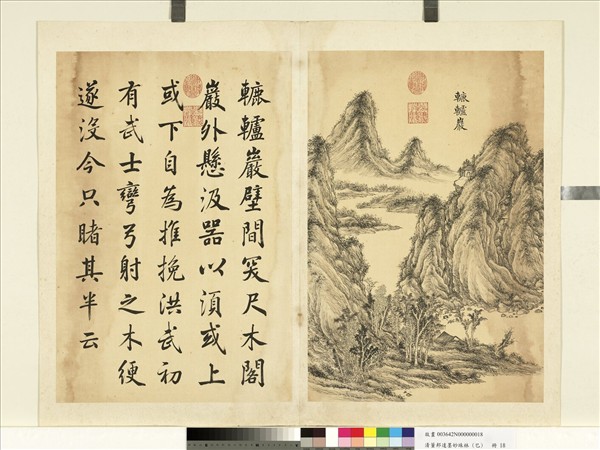 轆轤巖
轆轤巖壁間突尺木閣
巖外懸汲器以湏或上
或下自為推挽洪武初
有武士彎弓射之木便
遂沒今只睹其半云
故畫 003642N000000018
清董邦達墨妙珠林（巳） 冊 18